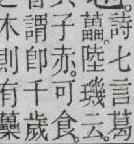 詩七言葛
藟。陸璣云。
子赤。可食。
謂卽千歲
木則有蘽